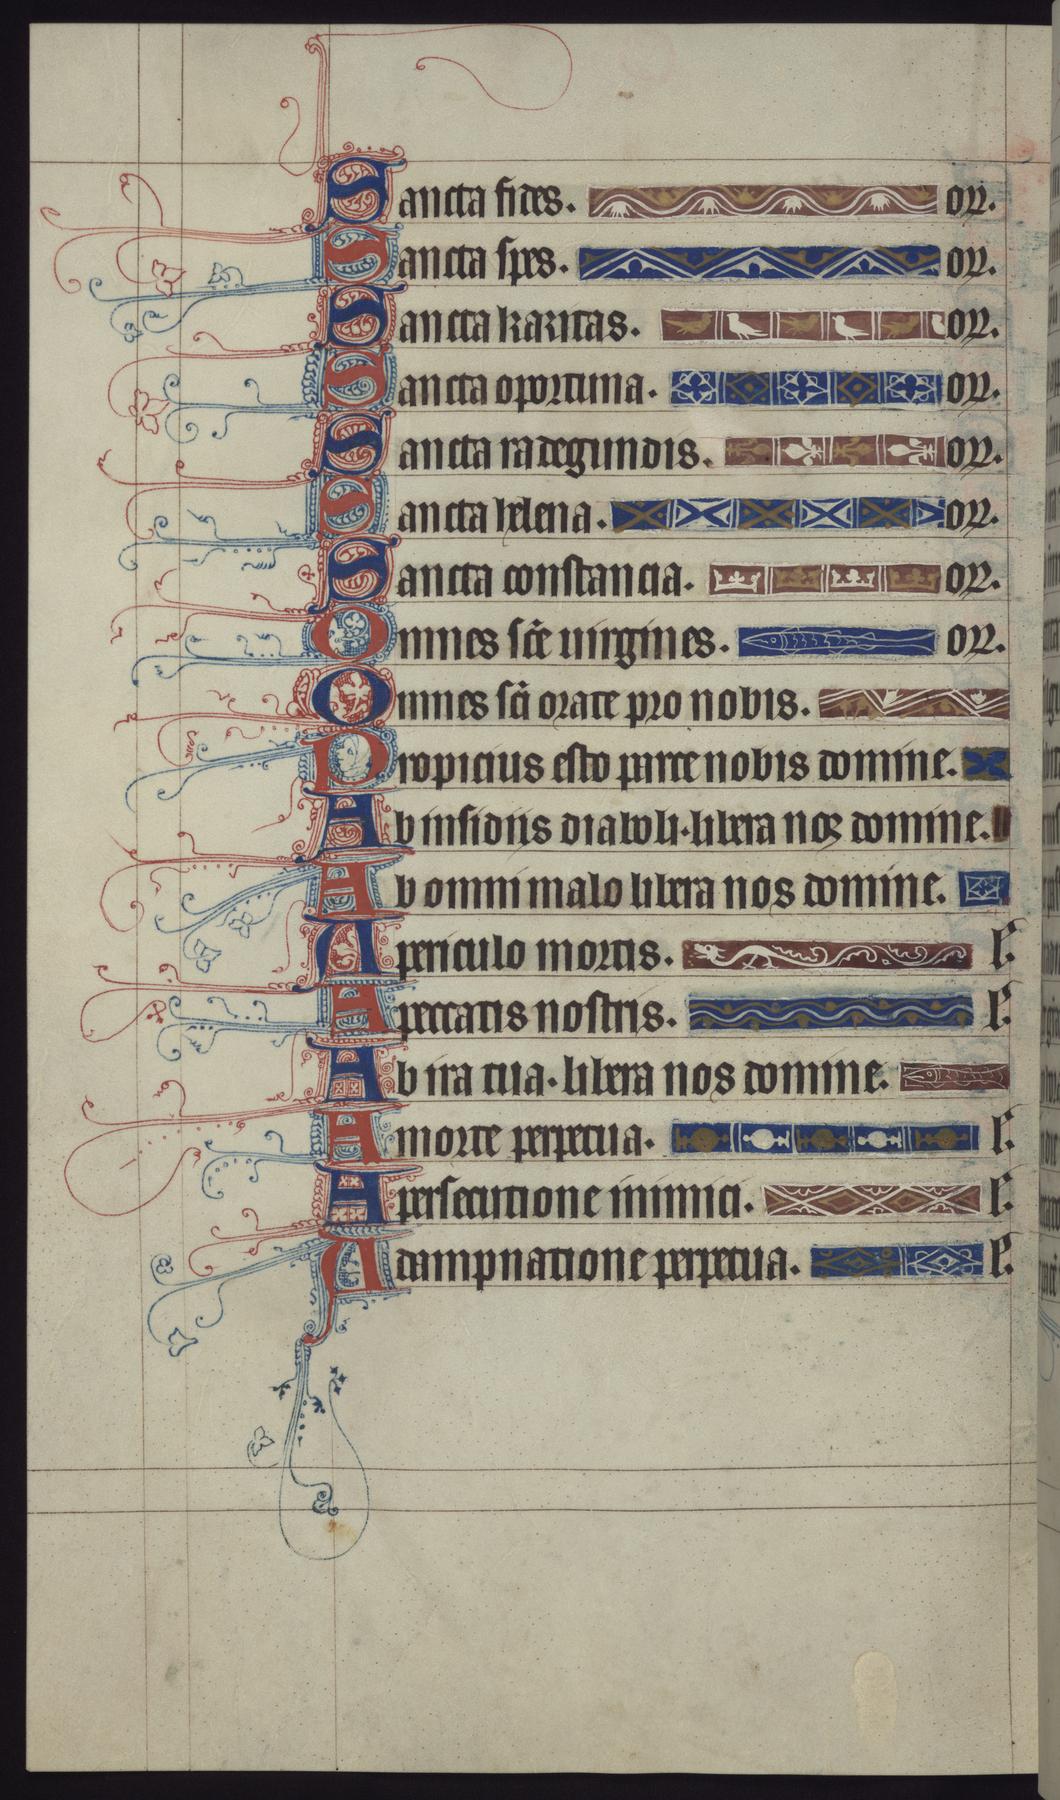 Sancta fides. or.
Sancta spes. or.
Sancta karitas. or.
Sancta oportuna. or.
Sancta radegundis. or.
Sancta helena. or.
Sancta constancia. or.
Omnes sc̃e uirgines. or.
Omnes sc̃i orate pro nobis.
Propicius esto parce nobis domine.
Ab insidiis diaboli. libera nos domine.
Ab omni malo libera nos domine.
A periculo mortis. l'.
A peccatis nostris. l'.
Ab ira tua. libera nos domine.
A morte perpetua. l'.
A persecutione inimici. l'.
A dampnatione perpetua. l'.